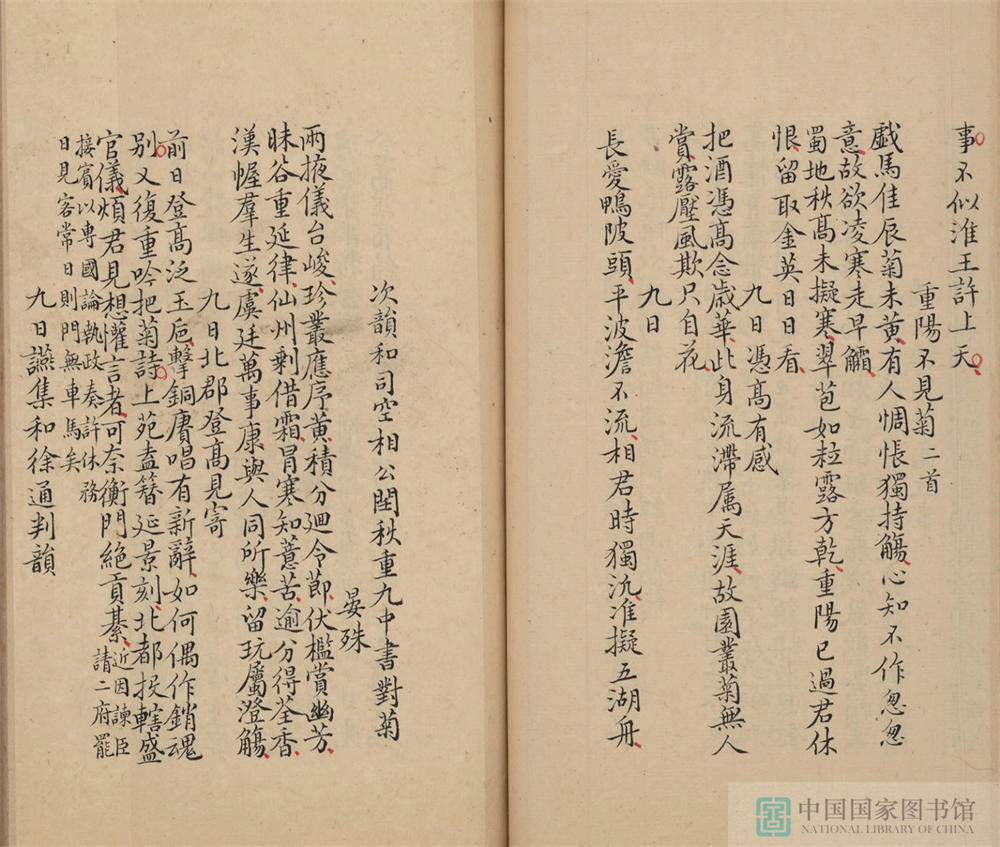 事不似淮王許上天
重陽不見菊二首
戲馬佳辰菊未黃有人惆悵獨持觴心知不作怱怱
意故欲凌寒走早觴
蜀地秋髙未擬寒翠苞如粒露方乾重陽已過君休
恨留取金英日日看
九日憑髙有感
把酒憑髙念歲華此身流滯属天涯故園叢菊無人
賞露壓風欺只自花
九日
長愛鴨陂頭平波澹不流相君時獨汎准擬五湖舟
次韻和司空相公閏秋重九中書對菊
晏殊
兩掖儀台峻珍叢應序黃積分廻令莭伏檻賞幽芳
昧谷重延律仙州剰借霜冐寒知薏苦逾分得荃香
漢幄羣生遂虞廷萬事康與人同所樂留玩屬澄觴
九日北郡登髙見寄
前日登髙泛玉巵擊銅賡唱有新辭如何偶作銷魂
別又復重吟把菊詩上苑盍簪延景刻北都投轄盛
官儀煩君見想懽言者可奈衡門絶貢綦近因諫臣請二府罷
接賓以專國論執政奏許休務
日見客常日則門無車馬矣
九日讌集和徐通判韻
中国国家图书馆
NATIONAL LIBRARY OF CHINA